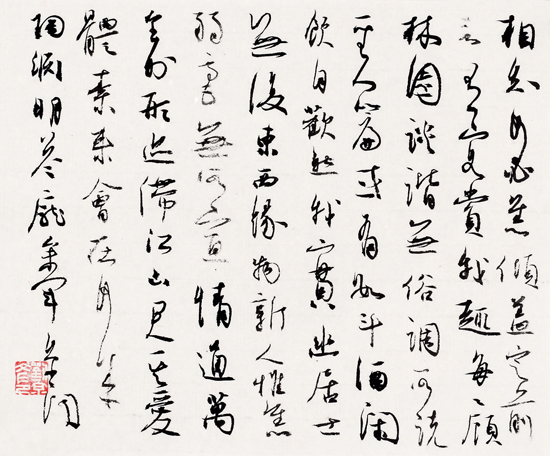 相知何必舊傾蓋定前
言有客賞我趣每每顧
林園談諧無俗調所說
聖人篇或有數斗酒閑
飲自歡然我實幽居士
無復東西緣物新人惟舊
弱毫無所宣情通萬
里外形迹滯江山君其愛
體素來會在何年
陶淵明答龐參軍